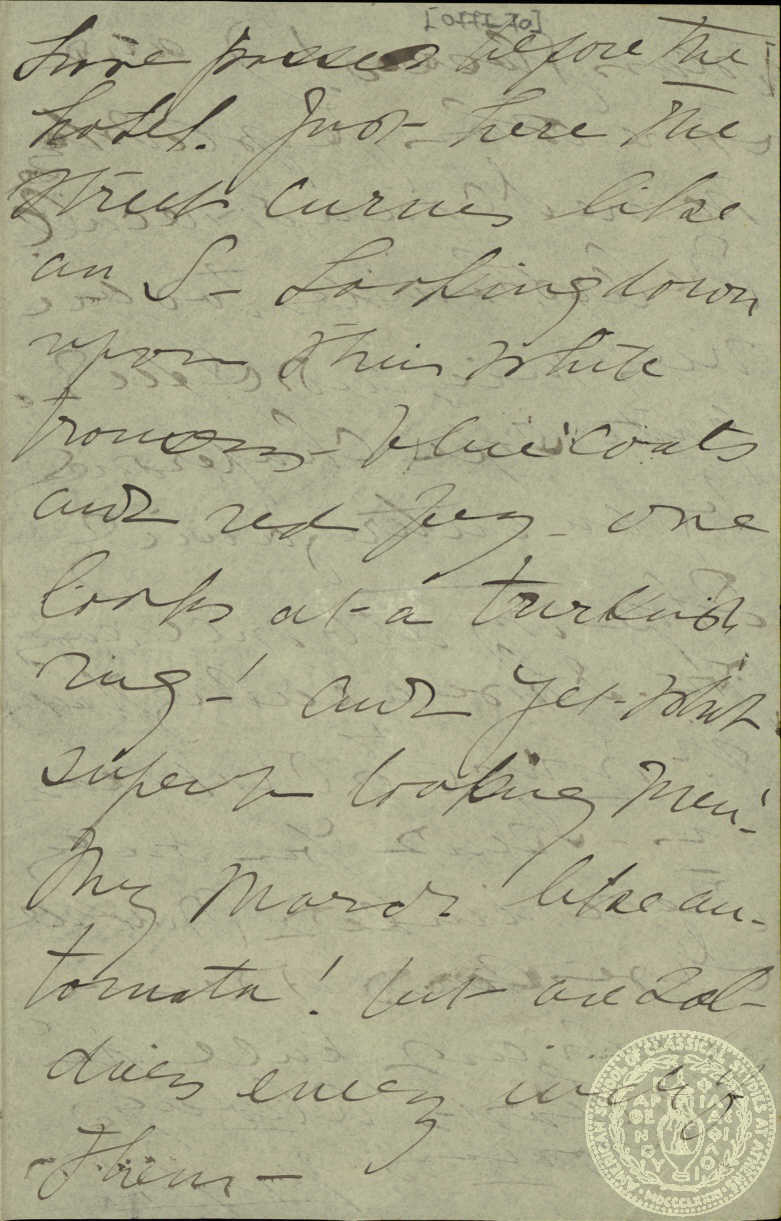 have passed before the
hotel. Just here the
street curves like
an S - Looking down
upon their white
trousers - blue coats
and red fez - one
looks at a turkish
rug -! and yet what
superb looking men! -
They march like au-
tomata! but are sol-
diers every inch of
them -
AMERICAN SCHOOL OF CLASSICAL STUDIES AT ATHENS
MDCCCLXXXI